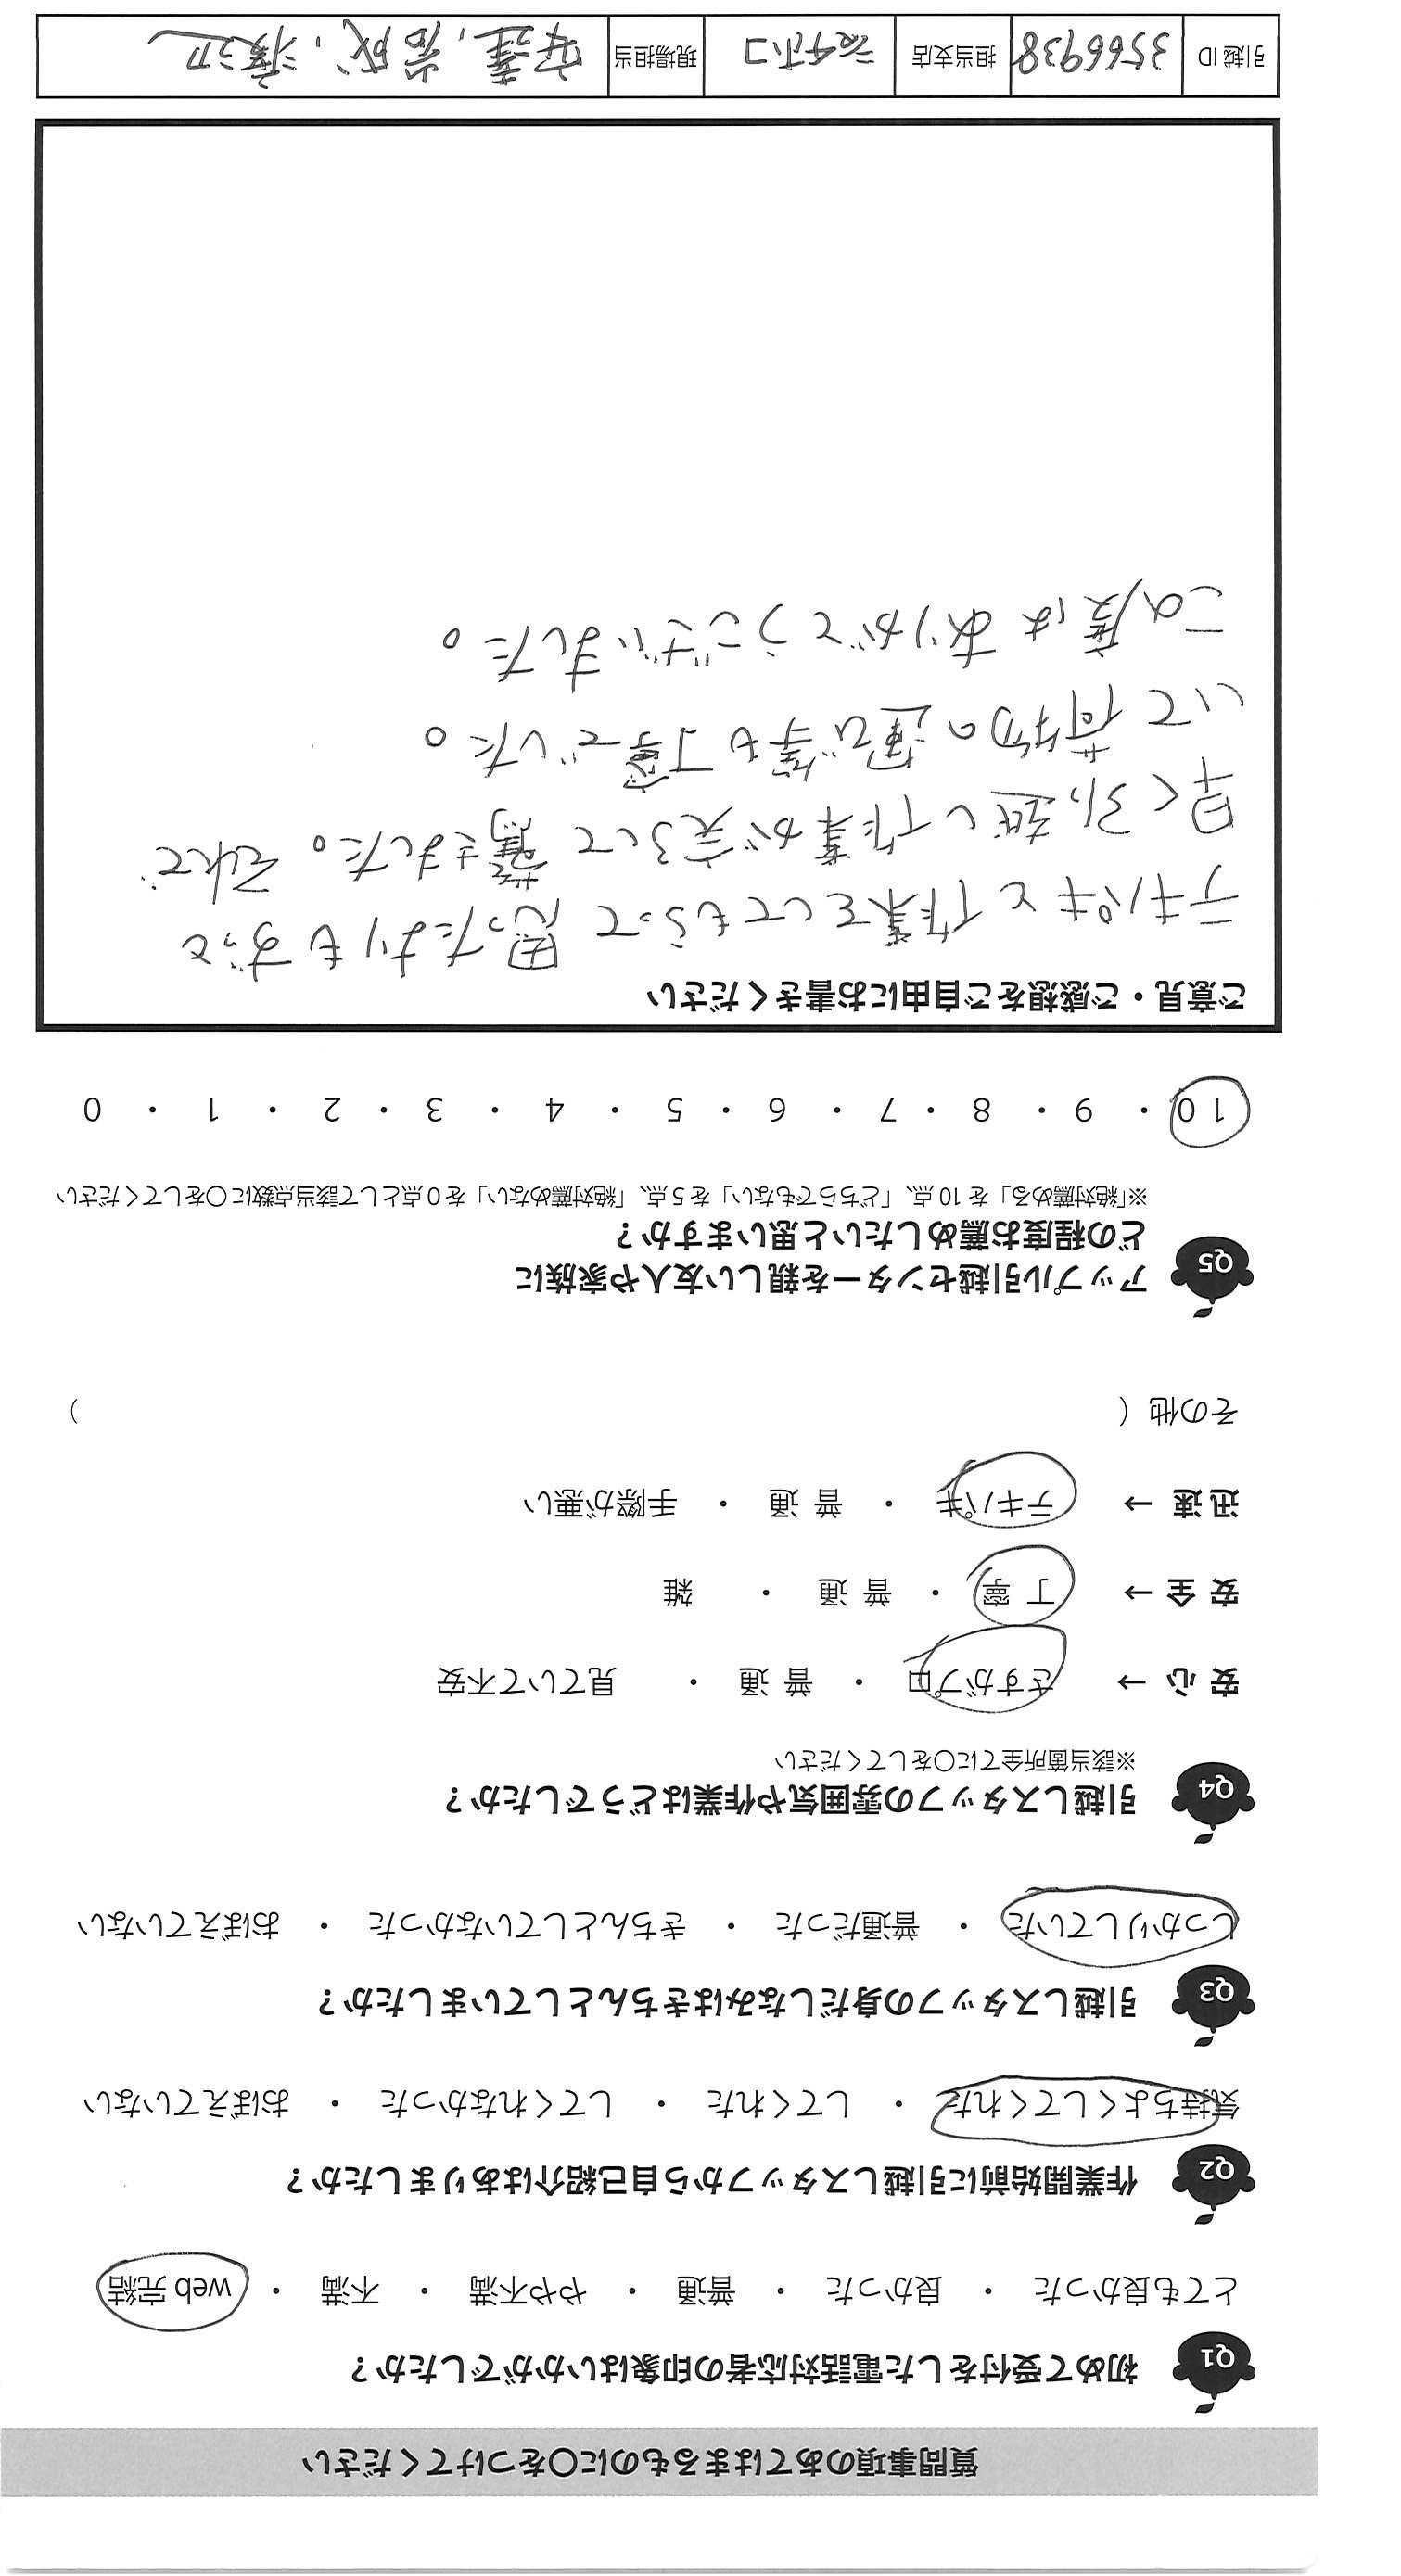 質問事項のあてはまるものに○をつけてください
Q1 初めて受付をした電話対応者の印象はいかがでしたか？
とても良かった ・ 良かった ・ 普通 ・ やや不満 ・ 不満 ・ web 完結
Q2 作業開始前に引越しスタッフから自己紹介はありましたか？
気持ちよくしてくれた ・ してくれた ・ してくれなかった ・ おぼえていない
Q3 引越しスタッフの身だしなみはきちんとしていましたか？
しっかりしていた ・ 普通だった ・ きちんとしていなかった ・ おぼえていない
Q4 引越しスタッフの雰囲気や作業はどうでしたか？
※該当箇所全てに○をしてください
安 心 → さすがプロ ・ 普 通 ・ 見ていて不安
安 全 → 丁 寧 ・ 普 通 ・ 雑
迅 速 → テキパキ ・ 普 通 ・ 手際が悪い
その他 （ ）
Q5 アップル引越センターを親しい友人や家族に
どの程度お薦めしたいと思いますか？
※「絶対薦める」を 10 点、「どちらでもない」を 5 点、「絶対薦めない」を 0 点として該当点数に○をしてください
10 ・ 9 ・ 8 ・ 7 ・ 6 ・ 5 ・ 4 ・ 3 ・ 2 ・ 1 ・ 0
ご意見・ご感想をご自由にお書きください
テキパキと作業をしてもらって思ったよりもずっと
早く引越し作業が完了して驚きました。それで
いて荷物の運び等も丁寧でした。
この度はありがとうございました。
引越 ID 3566938 担当支店 現場担当 安達、岩成、渡辺